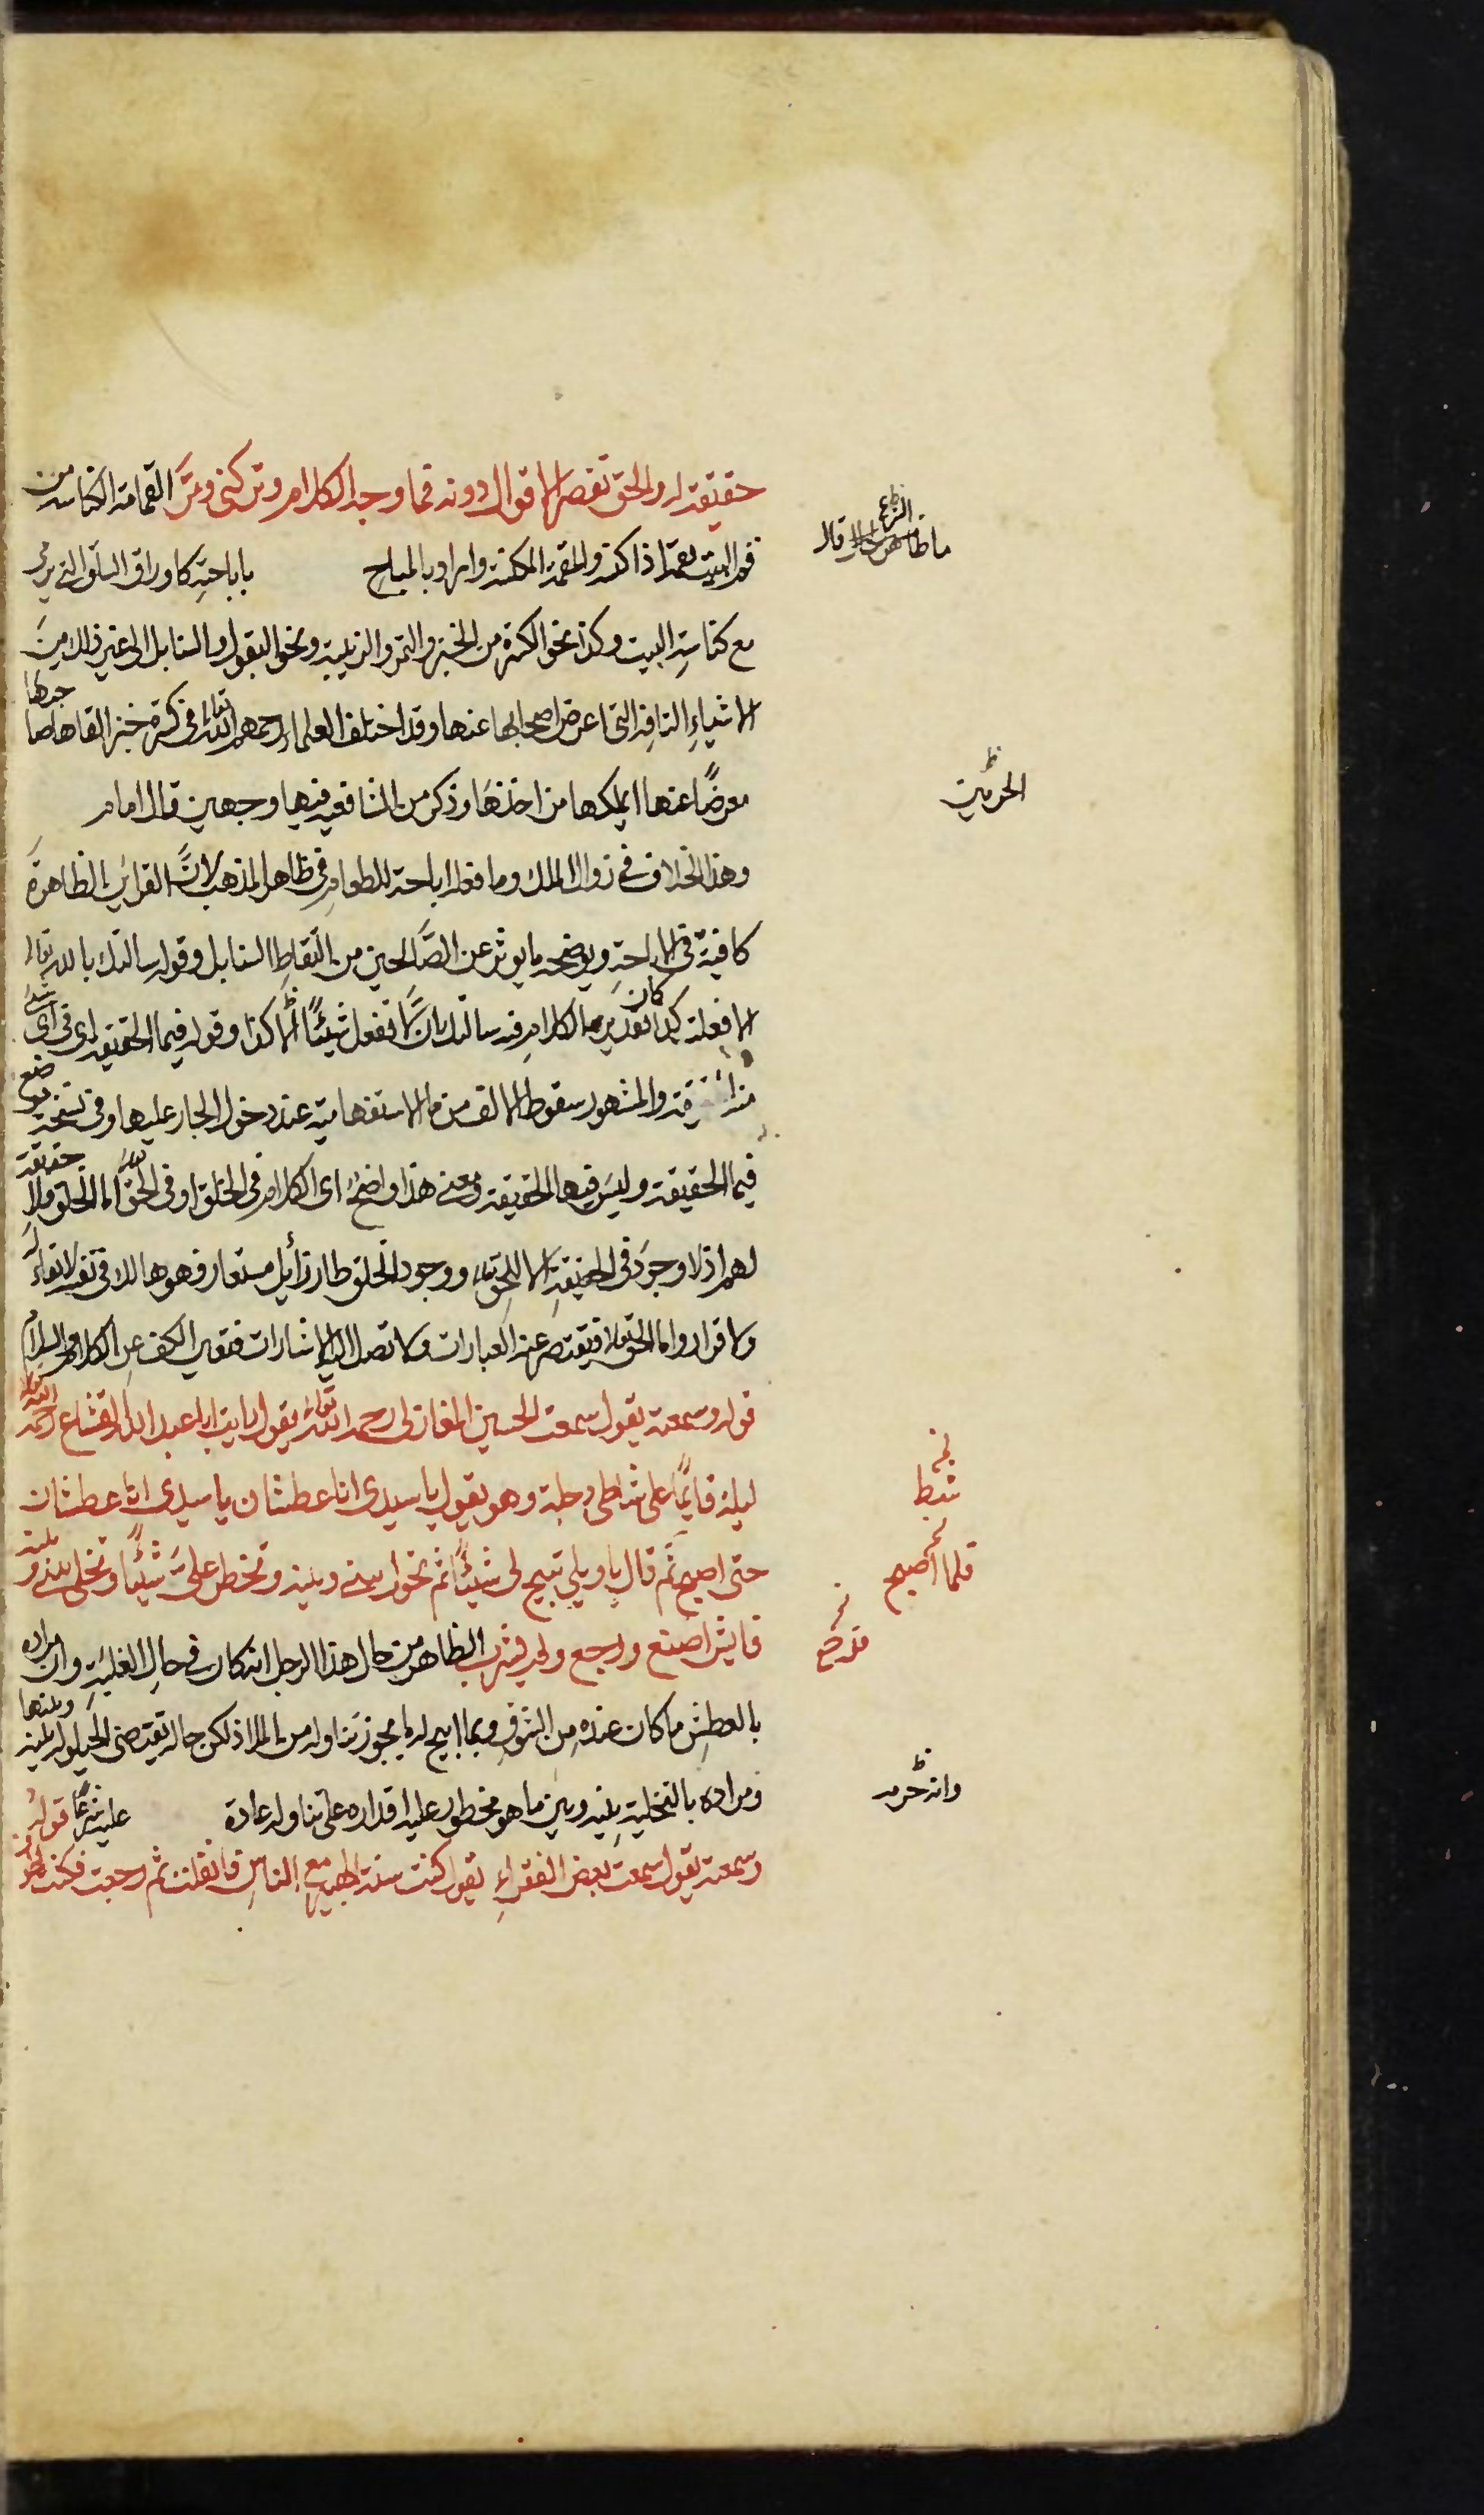 حقيقة له والحق تقصر الاقوال دونه فما وجه الكلام وتركني ومرَّ القمامة الكناسة من
قم البيت يقمه اذا كنسه والمقمة المكنسة واراد بالمباح باباحته كاوراق السلق التي ترمى
مع كناسة البيت وكذا نحو الكسرة من الخبز والتمرة والزبيبة ونحو البقول والسنابل الى غير ذلك من
الاشياء التافهة التي اعرض اصحابها عنها وقد اختلف العلماء رحمهم الله تعالى في كسرة خبز القاها صاحبها
معرضًا عنها ايملكها من اخذها وذكر من الشافعية فيها وجهين قال امام
وهذا الخلاف في زوال الملك وما فعله اباحة للطعام في ظاهر المذهب لانَّ القراين الظاهرة
كافية في الاباحة ويوضحه ما يوثر عن الصَّالحين من التقاط السنابل وقوله سالتك بالله تعالى
الا فعلت كذا كان تقدير الكلام فيه سالتك بان لا تفعل شيئًا الا كذا وقوله فيما الحقيقة اى فى اى شئ
والمشهور سقوط الالف من ما الاستفهامية عند دخول الجار عليها وفى نسخة موضع
فيما الحقيقة وليس فيها الحقيقة ومعنى هذا واضح اى الكلام فى الخلق او فى الحق اما الخلق فلا حقيقة
لهم اذ لا وجود فى الحقيقة الا للحق تعالى ووجود الخلق طار زايل مستعار فهو هالك فى نفسه لا بقاء له
ولا قرار واما الحق تعالى فتقصر عنه العبارات ولا تصل اليه الاشارات فتعين الكف عن الكلام والسلام
قوله وسمعته يقول سمعت الحسين المغازلى رحمه الله تعالى يقول رايت ابا عبد الله القشاع رحمه الله
ليلة قايمًا على شاطى دجلة وهو يقول يا سيدى انا عطشان يا سيدى انا عطشان
حتى اصبح ثم قال يا ويلى تبيح لى شيئًا ثم تحول بينى وبينه وتحظر علىَّ شيئًا وتخلى بينى وبينه
فايش اصنع ورجع ولم يشرب الظاهر من حال هذا الرجل انه كان فى حال الغلبة وان مراده
بالعطش ما كان عنده من الشوق وبما ابيح له ما يجوز تناوله من الماء اذ لكن حاله تقتضى الحيلولة بينه وبينها
ومراده بالتخلية بينه وبين ما هو محظور عليه اقداره على تناوله عادة عليه شرعًا قوله
وسمعته يقول سمعت بعض الفقراء يقول كنت سنة الهبير مع الناس فانفلت ثم رجعت فكنت اطوف
الشرع
قال
الحرمين
شط
فلما اصبح
فلم
وانه حرم